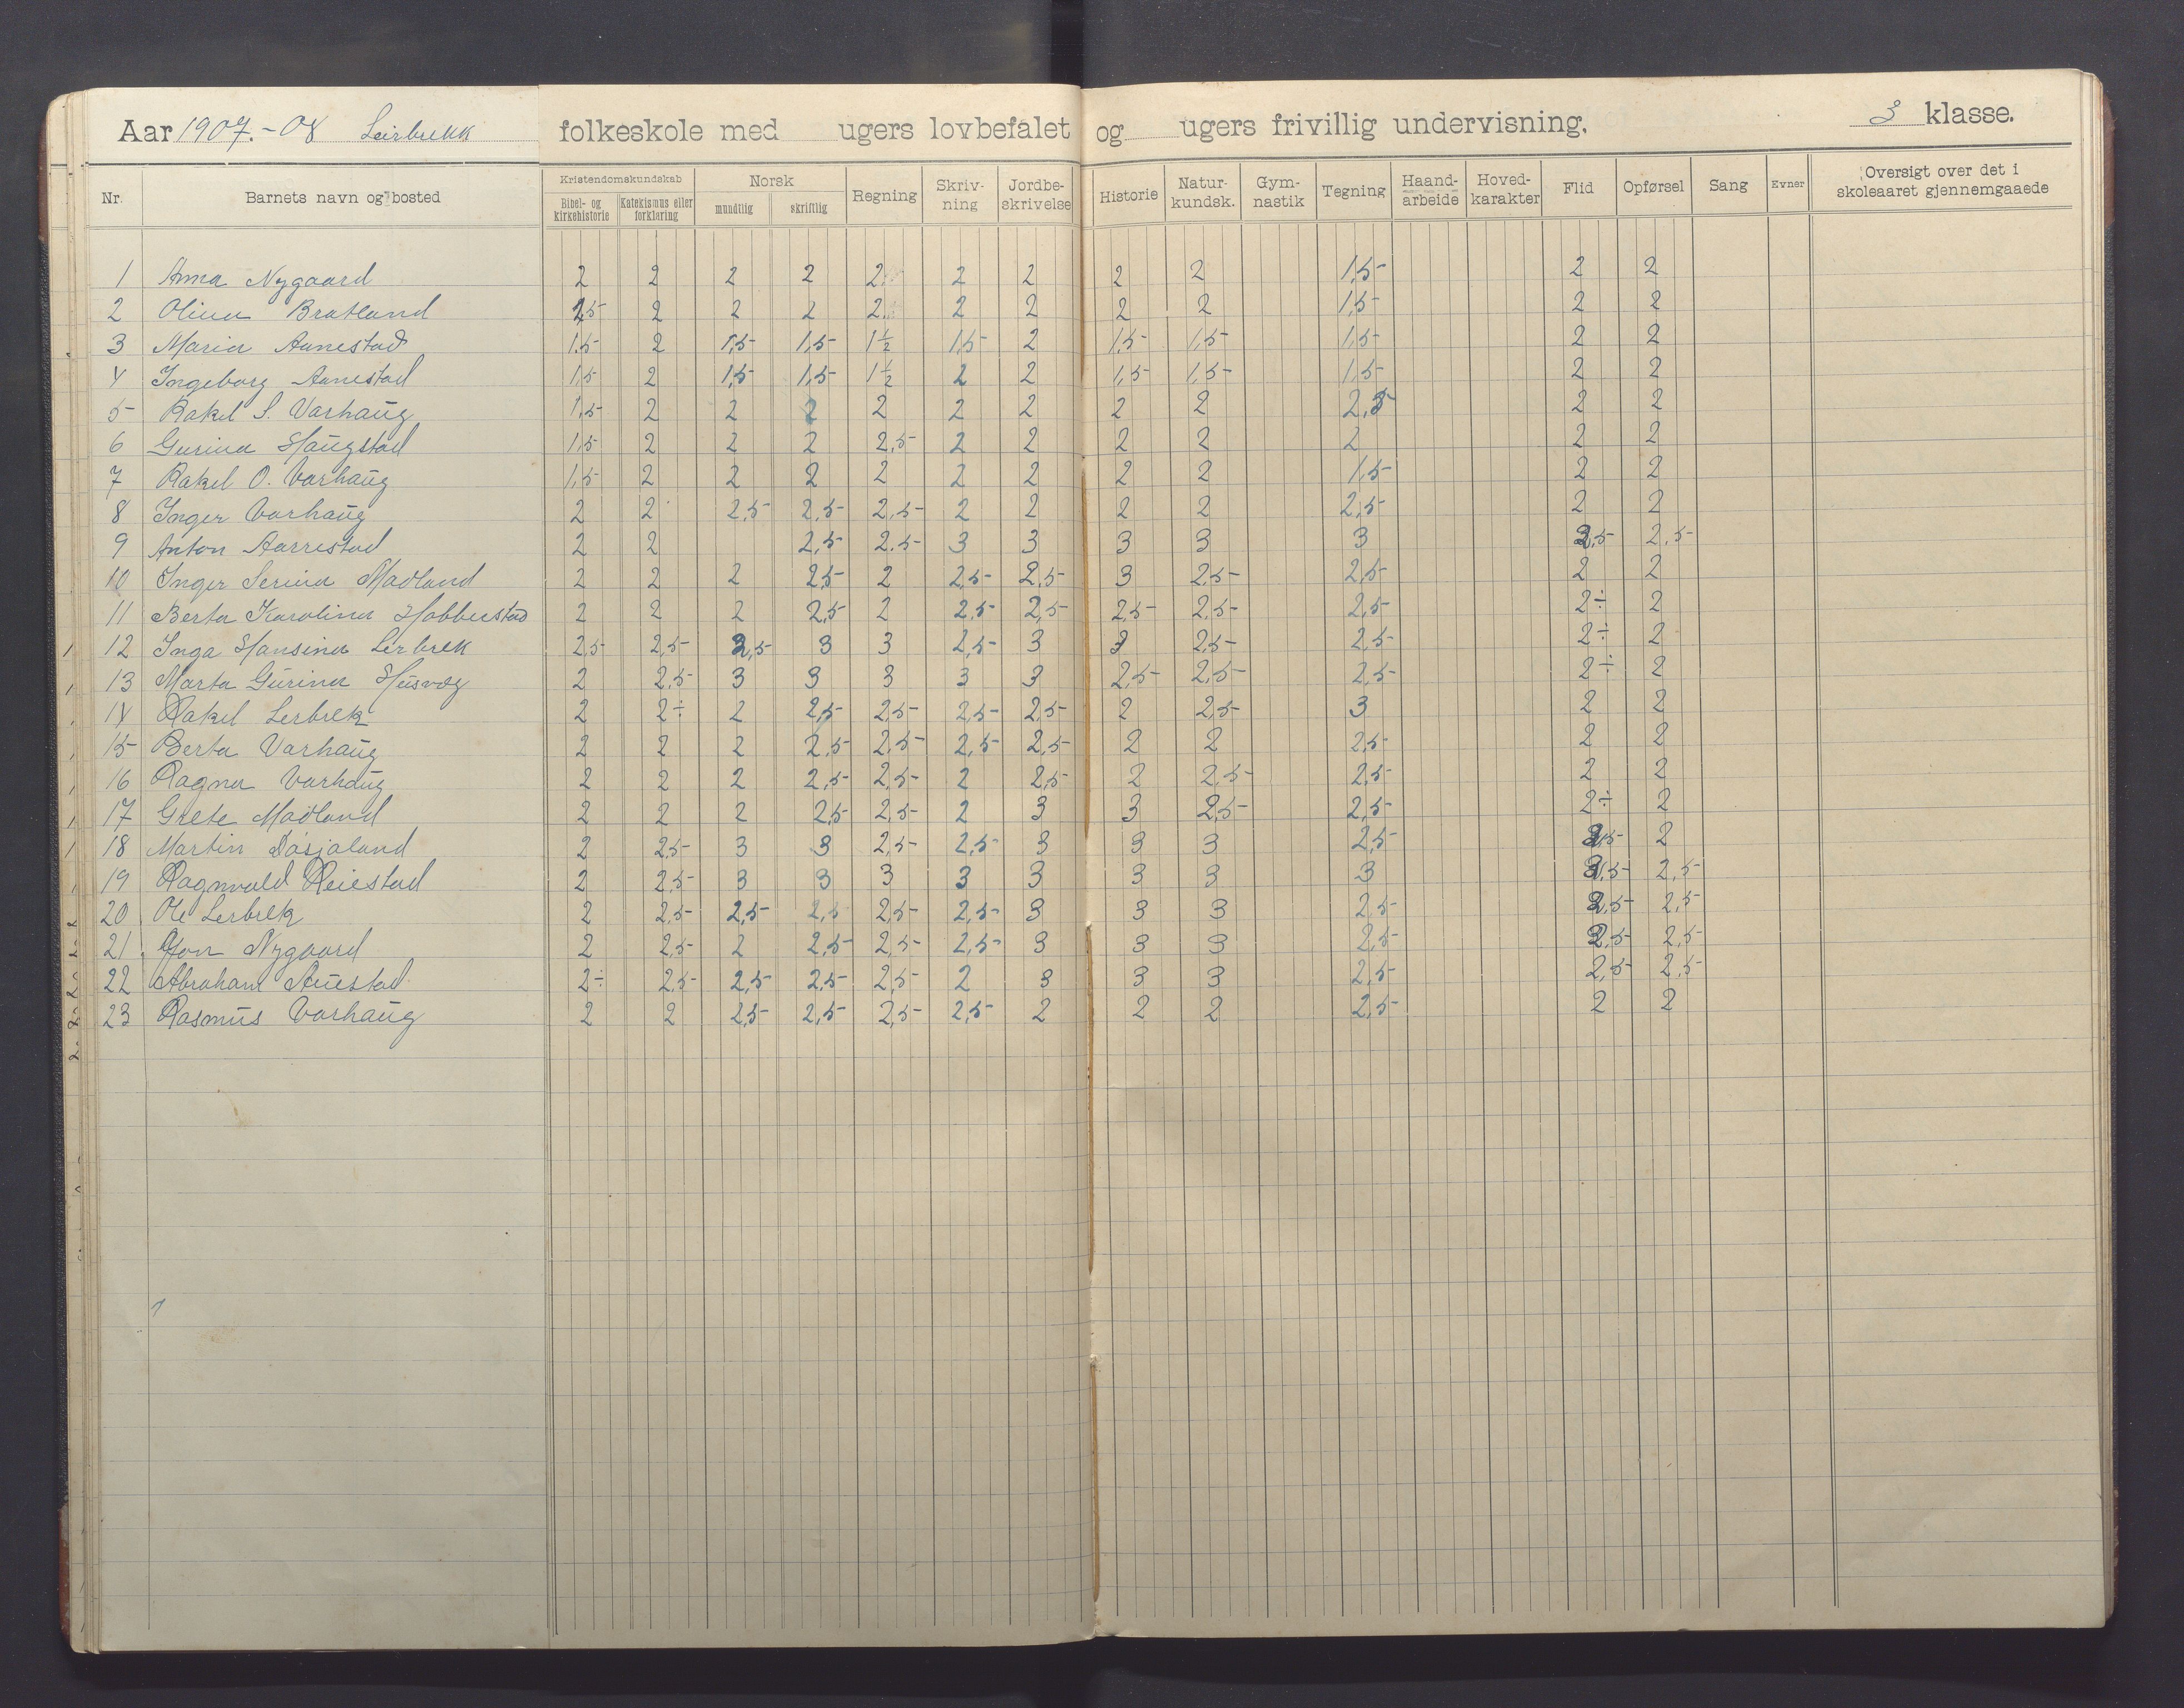 Aar 1907.-08 Leirbrekk folkeskole med ugers lovbefalet og ugers frivillig undervisning. 3 klasse.
Nr. Barnets navn og bosted Kristendomskundskab Bibel- og kirkehistorie Katekismus eller forklaring Norsk mundtlig skriftlig Regning Skriv-ning Jordbe-skrivelse Historie Natur-kundsk. Gym-nastik Tegning Haand-arbeide Hoved-karakter Flid Opførsel Sang Evner Oversigt over det i skoleaaret gjennemgaaede
1 Anna Nygaard 2 2 2 2 2 2 2 2 2 1,5 2 2
2 Olina Bratland 2,5 2 2 2 2 2 2 2 2 1,5 2 2
3 Maria Aanestad 1,5 2 1,5 1,5 1½ 1,5 2 1,5 1,5 1,5 2 2
4 Ingeborg Aanestad 1,5 2 1,5 1,5 1½ 2 2 1,5 1,5 1,5 2 2
5 Rakel S. Varhaug 1,5 2 2 2 2 2 2 2 2 2,5 2 2
6 Gurina Haugstad 1,5 2 2 2 2,5 2 2 2 2 2 2 2
7 Rakel O. Varhaug 1,5 2 2 2 2 2 2 2 2 1,5 2 2
8 Inger Varhaug 2 2 2,5 2,5 2,5 2 2 2 2 2,5 2 2
9 Anton Aarrestad 2 2 2,5 2,5 3 3 3 3 3 2,5 2,5
10 Inger Serina Madland 2 2 2 2,5 2 2,5 2,5 3 2,5 2,5 2 2
11 Berta Karolina Hobbestad 2 2 2 2,5 2 2,5 2,5 2,5 2,5 2,5 2÷ 2
12 Inga Hansina Lerbrek 2,5 2,5 2,5 3 3 2,5 3 3 2,5 2,5 2÷ 2
13 Marta Gurina Husvæg 2 2,5 3 3 3 3 3 2,5 2,5 2,5 2÷ 2
14 Rakel Lerbrek 2 2÷ 2 2,5 2,5 2,5 2,5 2 2,5 3 2 2
15 Berta Varhaug 2 2 2 2,5 2,5 2,5 2,5 2 2 2,5 2 2
16 Ragna Varhaug 2 2 2 2,5 2,5 2 2,5 2 2,5 2,5 2 2
17 Grete Madland 2 2 2 2,5 2,5 2 3 3 2,5 2,5 2÷ 2
18 Martin Dasjaland 2 2,5 3 3 2,5 2,5 3 3 3 2,5 2,5 2
19 Ragnvald Reiestad 2 2,5 3 3 3 3 3 3 3 3 2,5 2,5
20 Ole Lerbrek 2 2,5 2,5 2,5 2,5 2,5 3 3 3 2,5 2,5 2,5
21 Jon Nygaard 2 2,5 2 2,5 2,5 2,5 3 3 3 2,5 2,5 2,5
22 Abraham Auestad 2÷ 2,5 2,5 2,5 2,5 2 3 3 3 2,5 2,5 2,5
23 Rasmus Varhaug 2 2 2,5 2,5 2,5 2,5 2 2 2 2,5 2 2